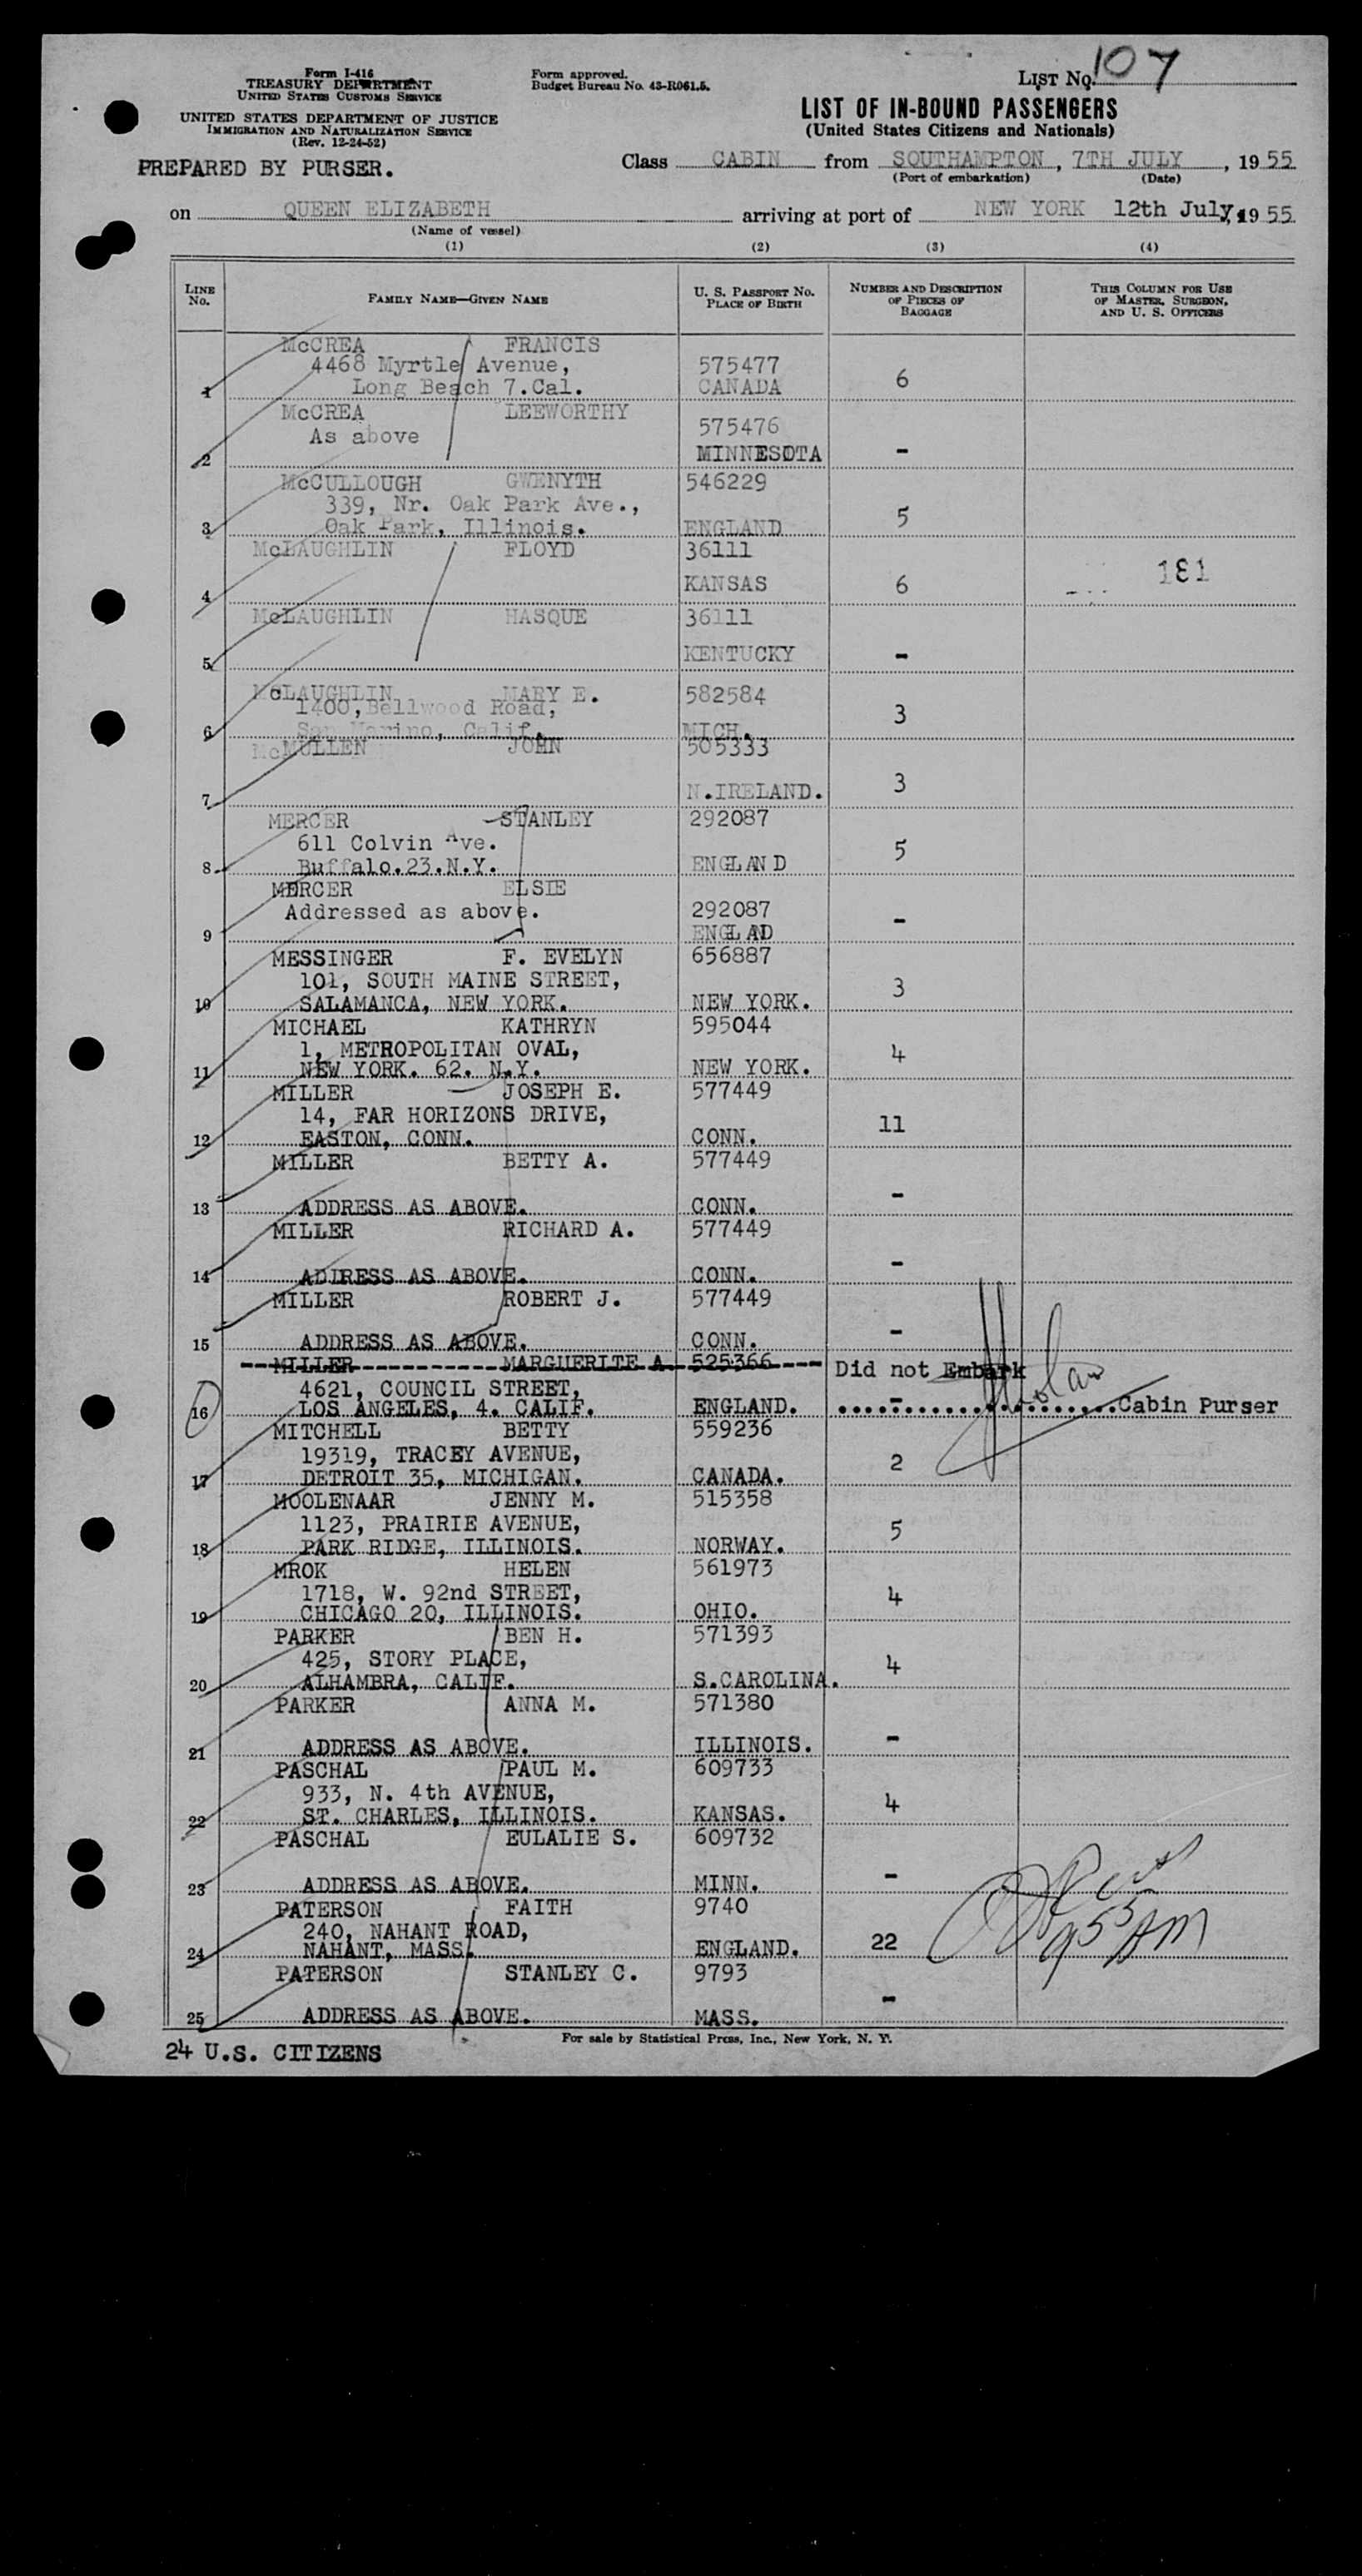 Form I-416
TREASURY DEPARTMENT
UNITED STATES CUSTOMS SERVICE
UNITED STATES DEPARTMENT OF JUSTICE
IMMIGRATION AND NATURALIZATION SERVICE
(Rev. 12-24-52)
PREPARED BY PURSER.
Form approved.
Budget Bureau No. 43-R061.5.
LIST No. 107
LIST OF IN-BOUND PASSENGERS
(United States Citizens and Nationals)
Class CABIN from SOUTHAMPTON, 7TH JULY, 19 55
(Port of embarkation) (Date)
on QUEEN ELIZABETH arriving at port of NEW YORK 12th July, 19 55
(Name of vessel)
(1) (2) (3) (4)
LINE No. FAMILY NAME—GIVEN NAME U. S. PASSPORT No. PLACE OF BIRTH NUMBER AND DESCRIPTION OF PIECES OF BAGGAGE THIS COLUMN FOR USE OF MASTER, SURGEON, AND U. S. OFFICERS
McCREA FRANCIS
4468 Myrtle Avenue, 575477
1 Long Beach 7.Cal. CANADA 6
McCREA LEEWORTHY
As above 575476
2 MINNESOTA -
McCULLOUGH GWENYTH 546229
339, Nr. Oak Park Ave.,
3 Oak Park, Illinois. ENGLAND 5
McLAUGHLIN FLOYD 36111
4 KANSAS 6 181
McLAUGHLIN HASQUE 36111
5 KENTUCKY -
McLAUGHLIN MARY E. 582584
1400, Bellwood Road,
6 San Marino, Calif. MICH. 3
McMULLEN JOHN 505333
7 N.IRELAND. 3
MERCER STANLEY 292087
611 Colvin Ave.
8 Buffalo.23.N.Y. ENGLAND 5
MERCER ELSIE
Addressed as above. 292087
9 ENGLAD -
MESSINGER F. EVELYN 656887
101, SOUTH MAINE STREET,
10 SALAMANCA, NEW YORK. NEW YORK. 3
MICHAEL KATHRYN 595044
1, METROPOLITAN OVAL,
11 NEW YORK. 62. N.Y. NEW YORK. 4
MILLER JOSEPH E. 577449
14, FAR HORIZONS DRIVE,
12 EASTON, CONN. CONN. 11
MILLER BETTY A. 577449
13 ADDRESS AS ABOVE. CONN. -
MILLER RICHARD A. 577449
14 ADDRESS AS ABOVE. CONN. -
MILLER ROBERT J. 577449
15 ADDRESS AS ABOVE. CONN. -
MILLER MARGUERITE A 525366 Did not Embark
4621, COUNCIL STREET,
16 LOS ANGELES, 4. CALIF. ENGLAND. - Cabin Purser
MITCHELL BETTY 559236
19319, TRACEY AVENUE,
17 DETROIT 35, MICHIGAN. CANADA. 2
MOOLENAAR JENNY M. 515358
1123, PRAIRIE AVENUE,
18 PARK RIDGE, ILLINOIS. NORWAY. 5
MROK HELEN 561973
1718, W. 92nd STREET,
19 CHICAGO 20, ILLINOIS. OHIO. 4
PARKER BEN H. 571393
425, STORY PLACE,
20 ALHAMBRA, CALIF. S.CAROLINA. 4
PARKER ANNA M. 571380
21 ADDRESS AS ABOVE. ILLINOIS. -
PASCHAL PAUL M. 609733
933, N. 4th AVENUE,
22 ST. CHARLES, ILLINOIS. KANSAS. 4
PASCHAL EULALIE S. 609732
23 ADDRESS AS ABOVE. MINN. -
PATERSON FAITH 9740
240, NAHANT ROAD,
24 NAHANT, MASS. ENGLAND. 22 953 AM
PATERSON STANLEY C. 9793
25 ADDRESS AS ABOVE. MASS. -
For sale by Statistical Press, Inc., New York, N. Y.
24 U.S. CITIZENS